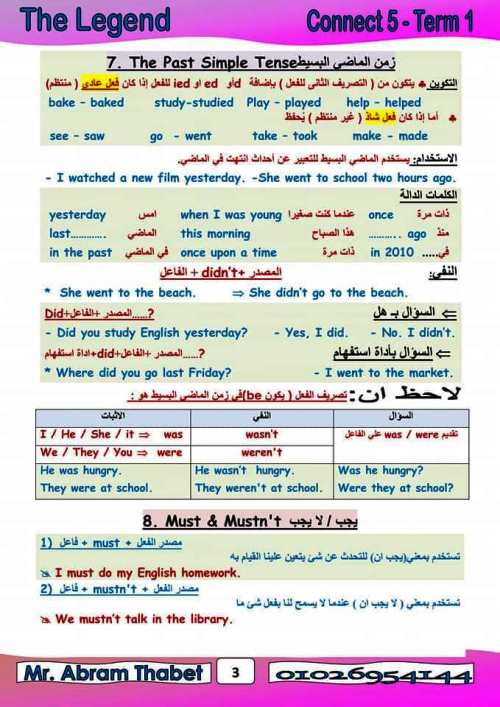 The Legend
Connect 5 - Term 1
7. The Past Simple Tense زمن الماضي البسيط
التكوين ♣ يتكون من ( التصريف الثانى للفعل ) بإضافة d او ed او ied للفعل إذا كان فعل عادي ( منتظم)
bake – baked study-studied Play – played help – helped
♣ أما إذا كان فعل شاذ ( غير منتظم ) يُحفظ
see – saw go - went take – took make – made
الاستخدام: يستخدم الماضي البسيط للتعبير عن أحداث انتهت في الماضي.
- I watched a new film yesterday. -She went to school two hours ago.
الكلمات الدالة
yesterday امس when I was young عندما كنت صغيرا once ذات مرة
last............. الماضي this morning هذا الصباح ........... ago منذ
in the past في الماضي once upon a time ذات مرة in 2010 في.....
النفي: الفاعل + didn't+ المصدر
* She went to the beach. ⇒ She didn't go to the beach.
⇐ السؤال بـ هل Did+الفاعل+ المصدر......?
- Did you study English yesterday? - Yes, I did. - No. I didn't.
⇐ السؤال بأداة استفهام اداة استفهام+did+الفاعل+ المصدر......?
* Where did you go last Friday? - I went to the market.
لاحظ ان: تصريف الفعل ( يكون be)في زمن الماضي البسيط هو :
الاثبات النفي السؤال
I / He / She / it ⇒ was wasn't تقديم was / were علي الفاعل
We / They / You ⇒ were weren't
He was hungry. He wasn't hungry. Was he hungry?
They were at school. They weren't at school. Were they at school?
8. Must & Mustn't يجب / لا يجب
1) فاعل + must + مصدر الفعل
تستخدم بمعني(يجب ان) للتحدث عن شئ يتعين علينا القيام به
I must do my English homework.
2) فاعل + mustn't + مصدر الفعل
تستخدم بمعني ( لا يجب ان ) عندما لا يسمح لنا بفعل شئ ما
We mustn't talk in the library.
Mr. Abram Thabet
3
01026954144